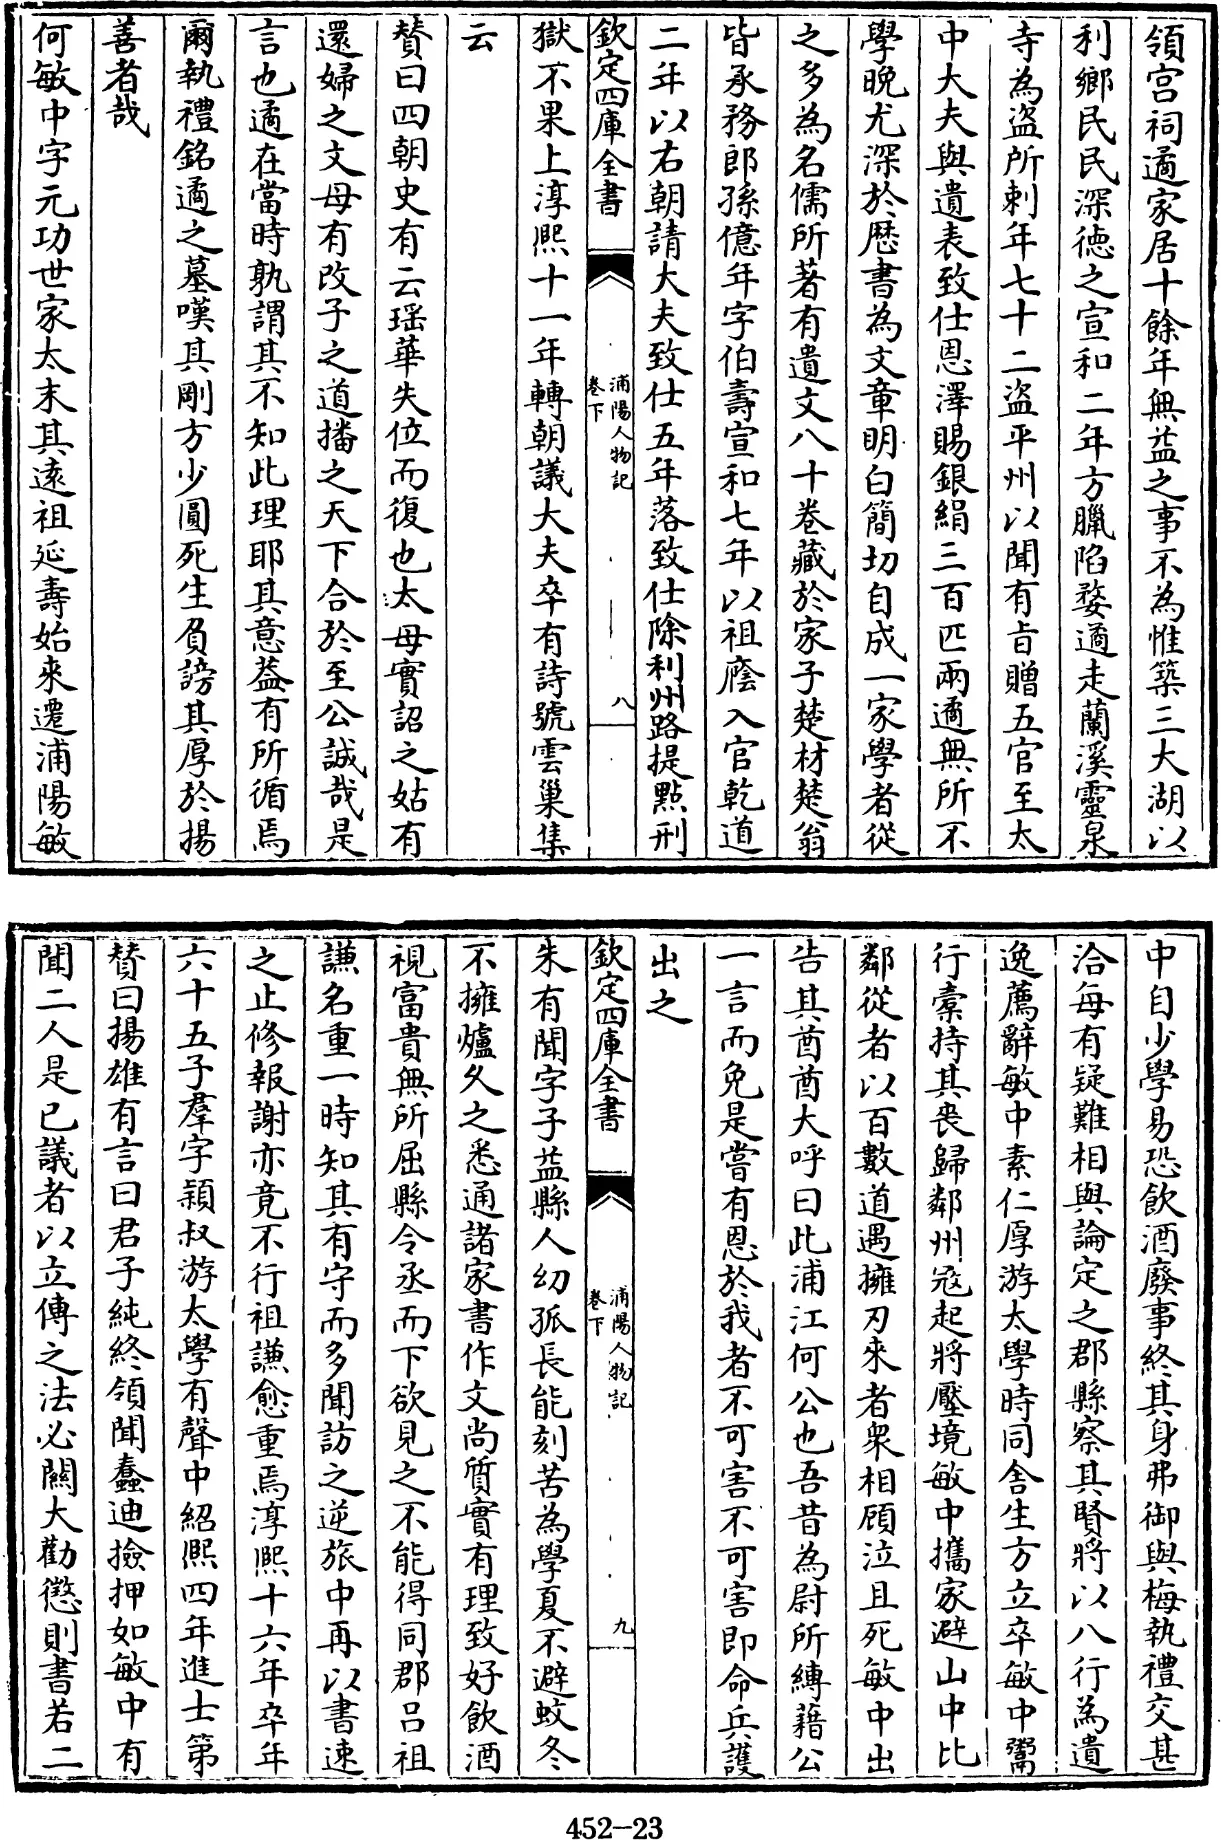 領宫祠遹家居十餘年無益之事不為惟築三大湖以
利鄉民民深徳之宣和二年方臘陷婺遹走蘭溪靈泉
寺為盗所刺年七十二盗平州以聞有㫖贈五官至太
中大夫與遺表致仕恩澤賜銀絹三百匹兩遹無所不
學晩尤深於厯書為文章明白簡切自成一家學者從
之多為名儒所著有遺文八十卷藏於家子楚材楚翁
皆承務郎孫億年字伯壽宣和七年以祖廕入官乾道
二年以右朝請大夫致仕五年落致仕除利州路提點刑
欽定四庫全書
浦陽人物記
卷下
八
獄不果上淳熈十一年轉朝議大夫卒有詩號雲巢集
云
賛曰四朝史有云瑶華失位而復也太母實詔之姑有
還婦之文母有改子之道播之天下合於至公誠哉是
言也遹在當時孰謂其不知此理耶其意葢有所循焉
爾執禮銘遹之墓嘆其剛方少圓死生負謗其厚於揚
善者哉
何敏中字元功世家太末其逺祖延壽始來遷浦陽敏
中自少學易恐飲酒廢事終其身弗御與梅執禮交甚
洽每有疑難相與論定之郡縣察其賢將以八行為遺
逸薦辭敏中素仁厚游太學時同舍生方立卒敏中鬻
行橐持其喪歸鄰州宼起將壓境敏中攜家避山中比
鄰從者以百數道遇擁刃來者衆相顧泣且死敏中出
告其酋酋大呼曰此浦江何公也吾昔為尉所縛藉公
一言而免是嘗有恩於我者不可害不可害即命兵護
出之
欽定四庫全書
浦陽人物記
卷下
九
朱有聞字子益縣人幼孤長能刻苦為學夏不避蚊冬
不擁爐久之悉通諸家書作文尚質實有理致好飲酒
視富貴無所屈縣令丞而下欲見之不能得同郡吕祖
謙名重一時知其有守而多聞訪之逆旅中再以書速
之止修報謝亦竟不行祖謙愈重焉淳熈十六年卒年
六十五子羣字頴叔游太學有聲中紹熈四年進士第
賛曰揚雄有言曰君子純終領聞蠢迪撿押如敏中有
聞二人是已議者以立傳之法必關大勸懲則書若二
452-23